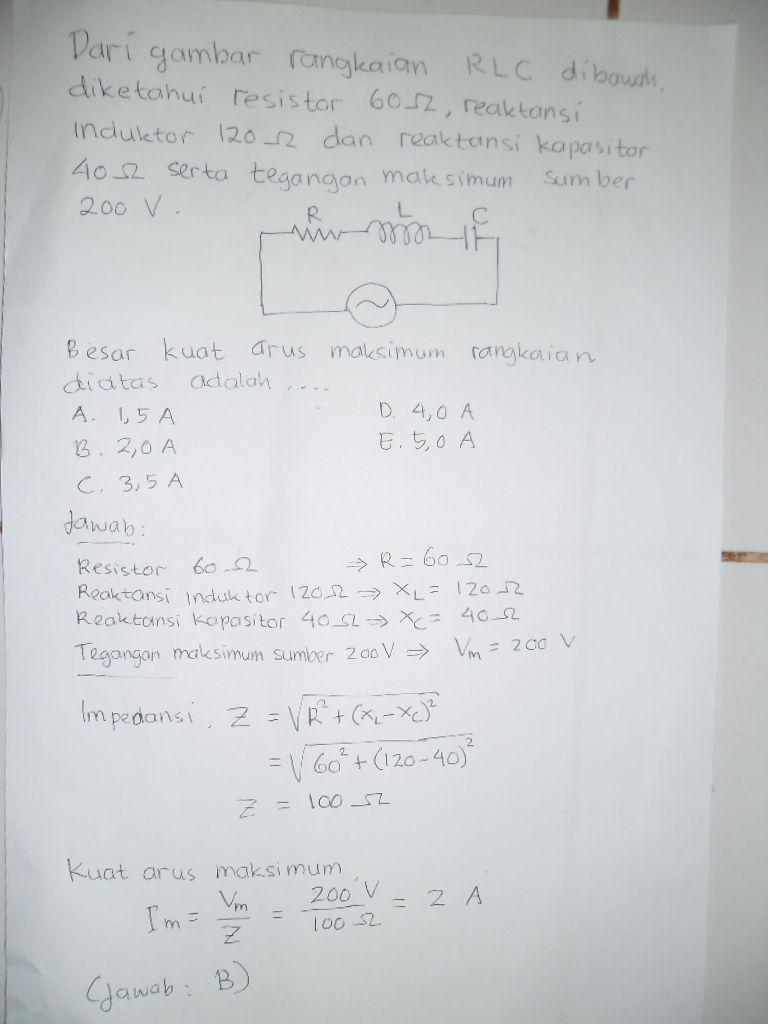 Dari gambar rangkaian RLC dibawah,
diketahui resistor 60Ω, reaktansi
induktor 120Ω dan reaktansi kapasitor
40Ω serta tegangan maksimum sumber
200 V.
R L C
Besar kuat arus maksimum rangkaian
diatas adalah ....
A. 1,5 A D. 4,0 A
B. 2,0 A E. 5,0 A
C. 3,5 A
Jawab:
Resistor 60 Ω ⇒ R = 60 Ω
Reaktansi induktor 120Ω ⇒ XL = 120 Ω
Reaktansi kapasitor 40Ω ⇒ XC = 40Ω
Tegangan maksimum sumber 200V ⇒ Vm = 200 V
Impedansi, Z = √R² + (XL-XC)²
= √60² + (120-40)²
Z = 100 Ω
Kuat arus maksimum,
Im = Vm/Z = 200 V/100 Ω = 2 A
(Jawab: B)